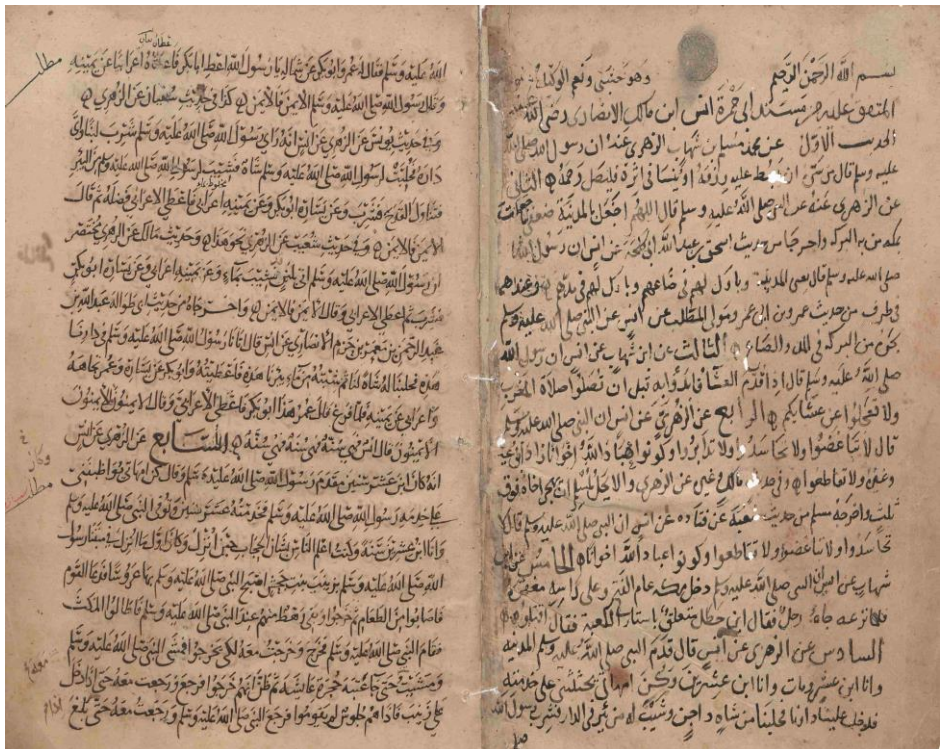 بسم الله الرحمن الرحيم وهو حسبي ونعم الوكيل
المتفق عليه من مسند ابي حمزة انس ابن مالك الانصاري رضي الله
الحديث الاول عن محمد مسلم بن شهاب الزهري عنه ان رسول الله صلى الله
عليه وسلم قال من سره ان يبسط عليه رزقه او ينسا في اثره فليصل رحمه الثاني
عن الزهري عنه عن النبي صلى الله عليه وسلم قال اللهم اجعل بالمدينة ضعفي ما جعلت
بمكة من البركة واخرجاه من حديث اسحق بن عبد الله ابن ابي طلحة عن انس ان رسول الله
صلى الله عليه وسلم قال يعني المدينة وبارك لهم في صاعهم وبارك لهم في مدهم وعندهما
في طرف من حديث عمرو بن ابي عمرو مولى المطلب عن انس عن النبي صلى الله عليه وسلم
من البركة في المد والصاع الثالث عن ابن شهاب عن انس ان رسول الله
صلى الله عليه وسلم قال اذا قدم العشا فابدؤا به قبل ان تصلوا صلاة المغرب
ولا تعجلوا عن عشايكم الرابع عن الزهري عن انس ان النبي صلى الله عليه وسلم
قال لا تباغضوا ولا تحاسدوا ولا تدابروا وكونوا عباد الله اخوانا زاد ابن عيينة
وغيره ولا تقاطعوا وفي حديث مالك وغيره عن الزهري ولا يحل لمسلم ان يهجر اخاه فوق
ثلث واخرجه مسلم من حديث شعبة عن قتادة عن انس ان النبي صلى الله عليه وسلم قال لا
تحاسدوا ولا تباغضوا ولا تقاطعوا وكونوا عباد الله اخوانا الخامس عن ابن
شهاب عن انس ان النبي صلى الله عليه وسلم دخل مكة عام الفتح وعلى راسه مغفر
فلما نزعه جاءه رجل فقال ابن خطل متعلق باستار الكعبة فقال اقتلوه
السادس عن الزهري عن انس قال قدم النبي صلى الله عليه وسلم المدينة
وانا ابن عشر ومات وانا ابن عشرين وكن امهاتي يحثثنني على خدمته
فدخل علينا دارنا فحلبنا من شاة داجن وشيب له من بئر في الدار فشرب رسول الله
الله عليه وسلم فقال له عمر وابو بكر عن شماله يا رسول الله اعط ابا بكر فاعطاه اعرابيا عن يمينه
وقال رسول الله صلى الله عليه وسلم الايمن فالايمن كذا في حديث سفيان عن الزهري
وفي حديث يونس عن الزهري عن انس انه راى رسول الله صلى الله عليه وسلم شرب لبنا واتى
داره فحلبت لرسول الله صلى الله عليه وسلم شاة فشيب لرسول الله صلى الله عليه وسلم من البئر
فتناول القدح فشرب وعن يساره ابو بكر وعن يمينه اعرابي فاعطى الاعرابي فضله ثم قال
الايمن فالايمن وفي حديث شعيب عن الزهري نحو هذا وحديث مالك عن الزهري مختصر
ان رسول الله صلى الله عليه وسلم اتى بلبن قد شيب بماء وعن يمينه اعرابي وعن يساره ابو بكر
فشرب ثم اعطى الاعرابي وقال الايمن فالايمن واخرجاه من حديث ابي طوالة عبد الله بن
عبد الرحمن بن معمر بن حزم الانصاري عن انس قال اتانا رسول الله صلى الله عليه وسلم في دارنا
هذه فحلبنا له شاة لنا ثم شبته من ماء بئرنا هذه فاعطيته وابو بكر عن يساره وعمر تجاهه
واعرابي عن يمينه فلما فرغ قال عمر هذا ابو بكر فاعطى الاعرابي وقال الايمنون الايمنون
الايمنون قال انس فهي سنة فهي سنة فهي سنة السابع عن الزهري عن انس
انه كان ابن عشر سنين مقدم رسول الله صلى الله عليه وسلم وقال كن امهاتي يواظبنني
على خدمة رسول الله صلى الله عليه وسلم فخدمته عشر سنين وتوفي النبي صلى الله عليه وسلم
وانا ابن عشرين سنة وكنت اعلم الناس بشان الحجاب حين انزل وكان اول ما انزل في مبتنا رسول
الله صلى الله عليه وسلم بزينب بنت جحش اصبح النبي صلى الله عليه وسلم بها عروسا فدعا القوم
فاصابوا من الطعام ثم خرجوا وبقي رهط منهم عند النبي صلى الله عليه وسلم فاطالوا المكث
فقام النبي صلى الله عليه وسلم فخرج وخرجت معه لكي يخرجوا فمشى النبي صلى الله عليه وسلم
ومشيت حتى جا عتبة حجرة عائشة ثم ظن انهم خرجوا فرجع ورجعت معه حتى اذا دخل
على زينب فاذا هم جلوس لم يقوموا فرجع النبي صلى الله عليه وسلم ورجعت معه حتى بلغ